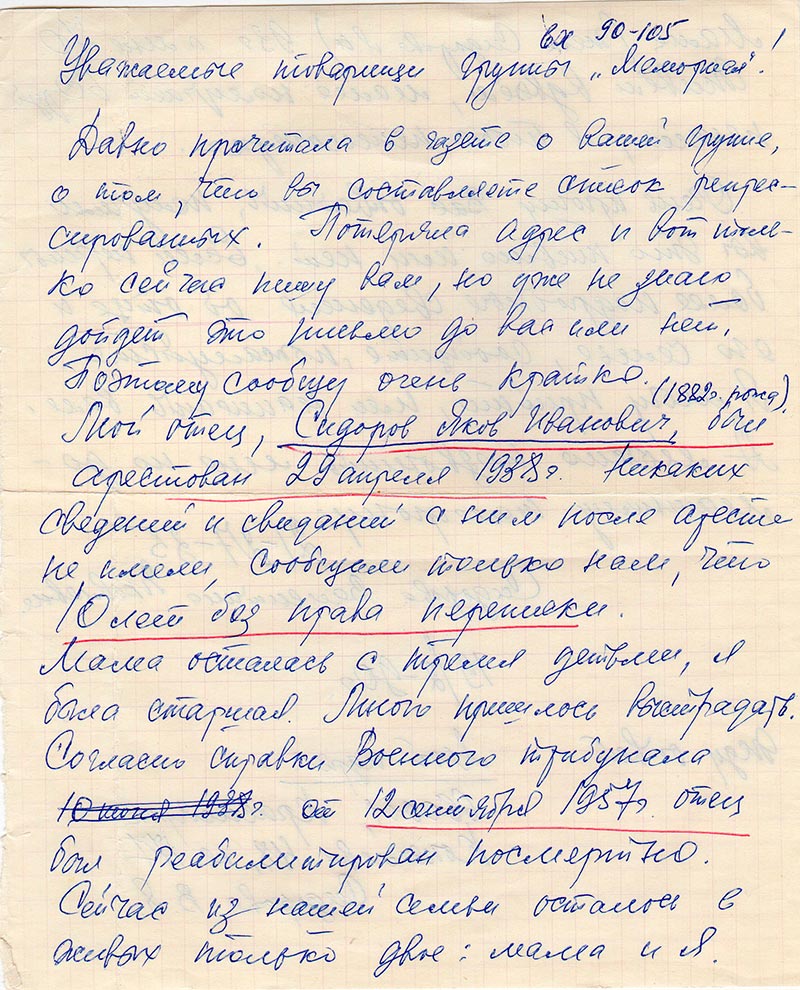 вх 90-105
Уважаемые товарищи группы „Мемориал"!
Давно прочитала в газете о вашей группе,
о том, что вы составляете список репрес-
сированных. Потеряла адрес и вот толь-
ко сейчас пишу вам, но уже не знаю
дойдет это письмо до вас или нет,
Поэтому сообщу очень кратко.
(1882г. рожд.)
Мой отец, Сидоров Яков Иванович, был
арестован 29 апреля 1938г. Никаких
сведений и свиданий с ним после ареста
не имели, сообщили только нам, что
10 лет без права переписки.
Мама осталась с тремя детьми, я
была старшая. Много пришлось выстрадать.
Согласно справки Военного трибунала
10 июня 1938г. от 12 сентября 1957г. отец
был реабилитирован посмертно.
Сейчас из нашей семьи осталось в
живых только двое: мама и я.